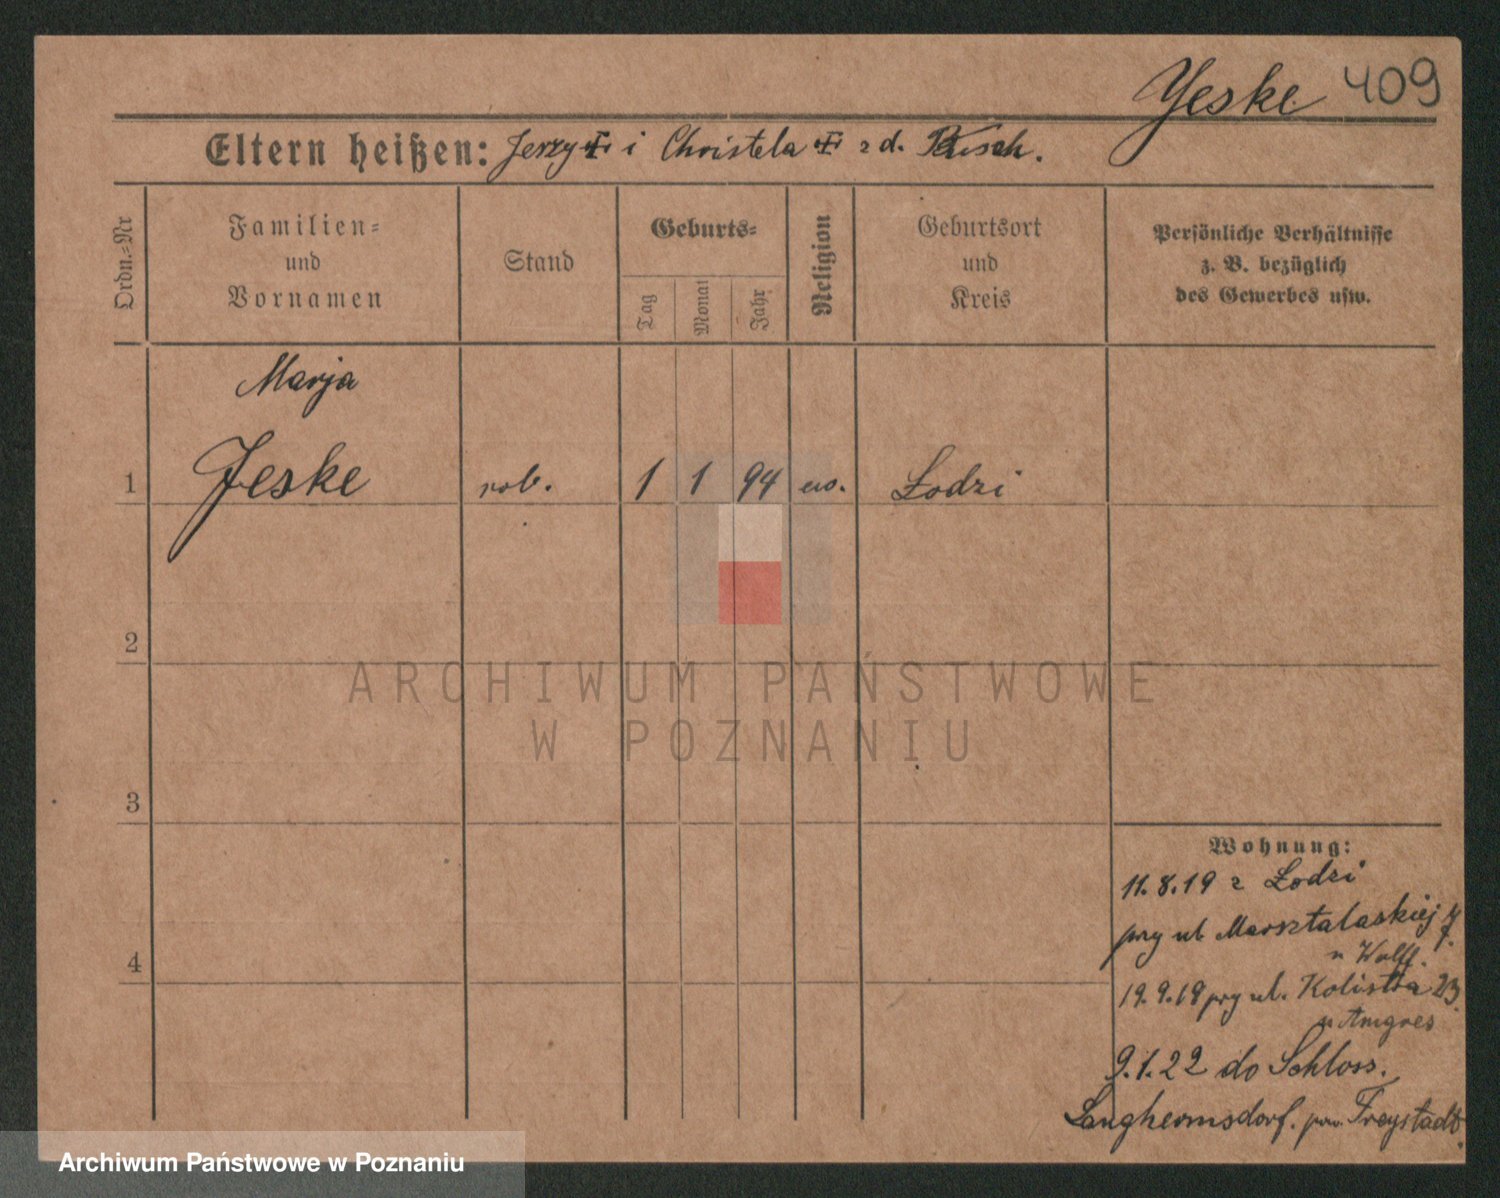 Yeske 409
Eltern heißen: Jerzy i Christela z d. Busch.
Ordn.-Nr
Familien-
und
Vornamen
Stand
Geburts-
Tag
Monat
Jahr
Religion
Geburtsort
und
Kreis
Persönliche Verhältnisse
z. B. bezüglich
des Gewerbes usw.
Marja
1 Jeske rob. 1 1 94 ew. Łodzi
2
3
4
Wohnung:
11.8.19 z Łodzi
przy ul Marsztalaskiej 7.
u Wolff.
19.9.19 przy ul. Kolistra 23.
u
9.1.22 do Schloss.
Langhermsdorf. pow. Freystadt.
ARCHIWUM PAŃSTWOWE
W POZNANIU
Archiwum Państwowe w Poznaniu